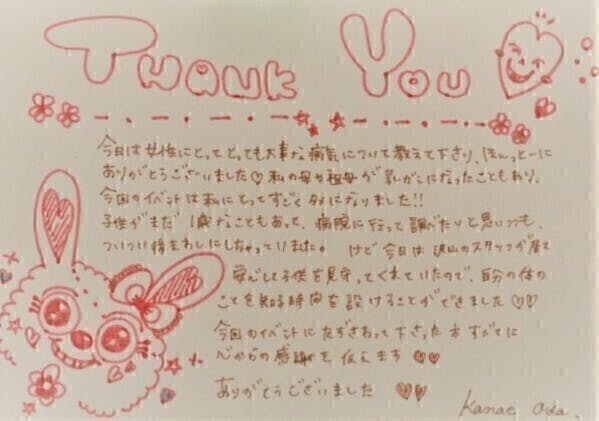 THANK YOU
今日は女性にとってとっても大事な病気について教えて下さり、ほんっとーに
ありがとうございました♡私の母や祖母が乳がんになったこともあり、
今回のイベントは私にとってすごくタメになりました!!
子供がまだ1歳なこともあって、病院に行って調べたりと思いつつも、
ついつい後まわしにしちゃっていました。けど今日は沢山のスタッフが居て
安心して子供を見守ってくれていたので、自分の体の
ことを知る時間を設けることができました♡♡
今回のイベントにたずさわって下さった方すべてに
心からの感謝を伝えます♡♡
ありがとうございました♡♡
Kanae Oda.